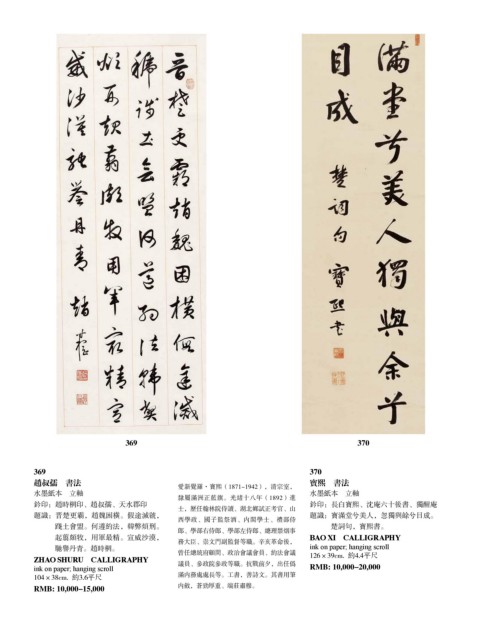 晉楚更霸趙魏困橫假途滅
虢踐土會盟何遵約法韓弊
煩刑起翦頗牧用軍最精宣
威沙漠馳譽丹青 趙時棡
滿堂兮美人獨與余兮
目成 楚詞句 寶熙書
369
370
369
趙叔孺 書法
水墨紙本 立軸
鈐印：趙時棡印、趙叔孺、天水郡印
題識：晉楚更霸，趙魏困橫。假途滅虢，
踐土會盟。何遵約法，韓弊煩刑。
起翦頗牧，用軍最精。宣威沙漠，
馳譽丹青。趙時棡。
ZHAO SHURU CALLIGRAPHY
ink on paper; hanging scroll
104×38cm. 約3.6平尺
RMB: 10,000-15,000
愛新覺羅·寶熙（1871-1942），清宗室，
隸屬滿洲正藍旗。光緒十八年（1892）進
士，歷任翰林院侍讀、湖北鄉試正考官、山
西學政、國子監祭酒、內閣學士、禮部侍
郎、學部右侍郎、學部左侍郎、總理禁煙事
務大臣、崇文門副監督等職。辛亥革命後，
曾任總統府顧問、政治會議會員、約法會議
議員、參政院參政等職。抗戰前夕，出任偽
滿內務處處長等。工書，善詩文。其書用筆
內斂，蒼勁厚重，端莊肅穆。
370
寶熙 書法
水墨紙本 立軸
鈐印：長白寶熙、沈庵六十後書、獨醒庵
題識：滿堂兮美人，忽獨與余兮目成。
楚詞句，寶熙書。
BAO XI CALLIGRAPHY
ink on paper; hanging scroll
126×39cm. 約4.4平尺
RMB: 10,000-20,000